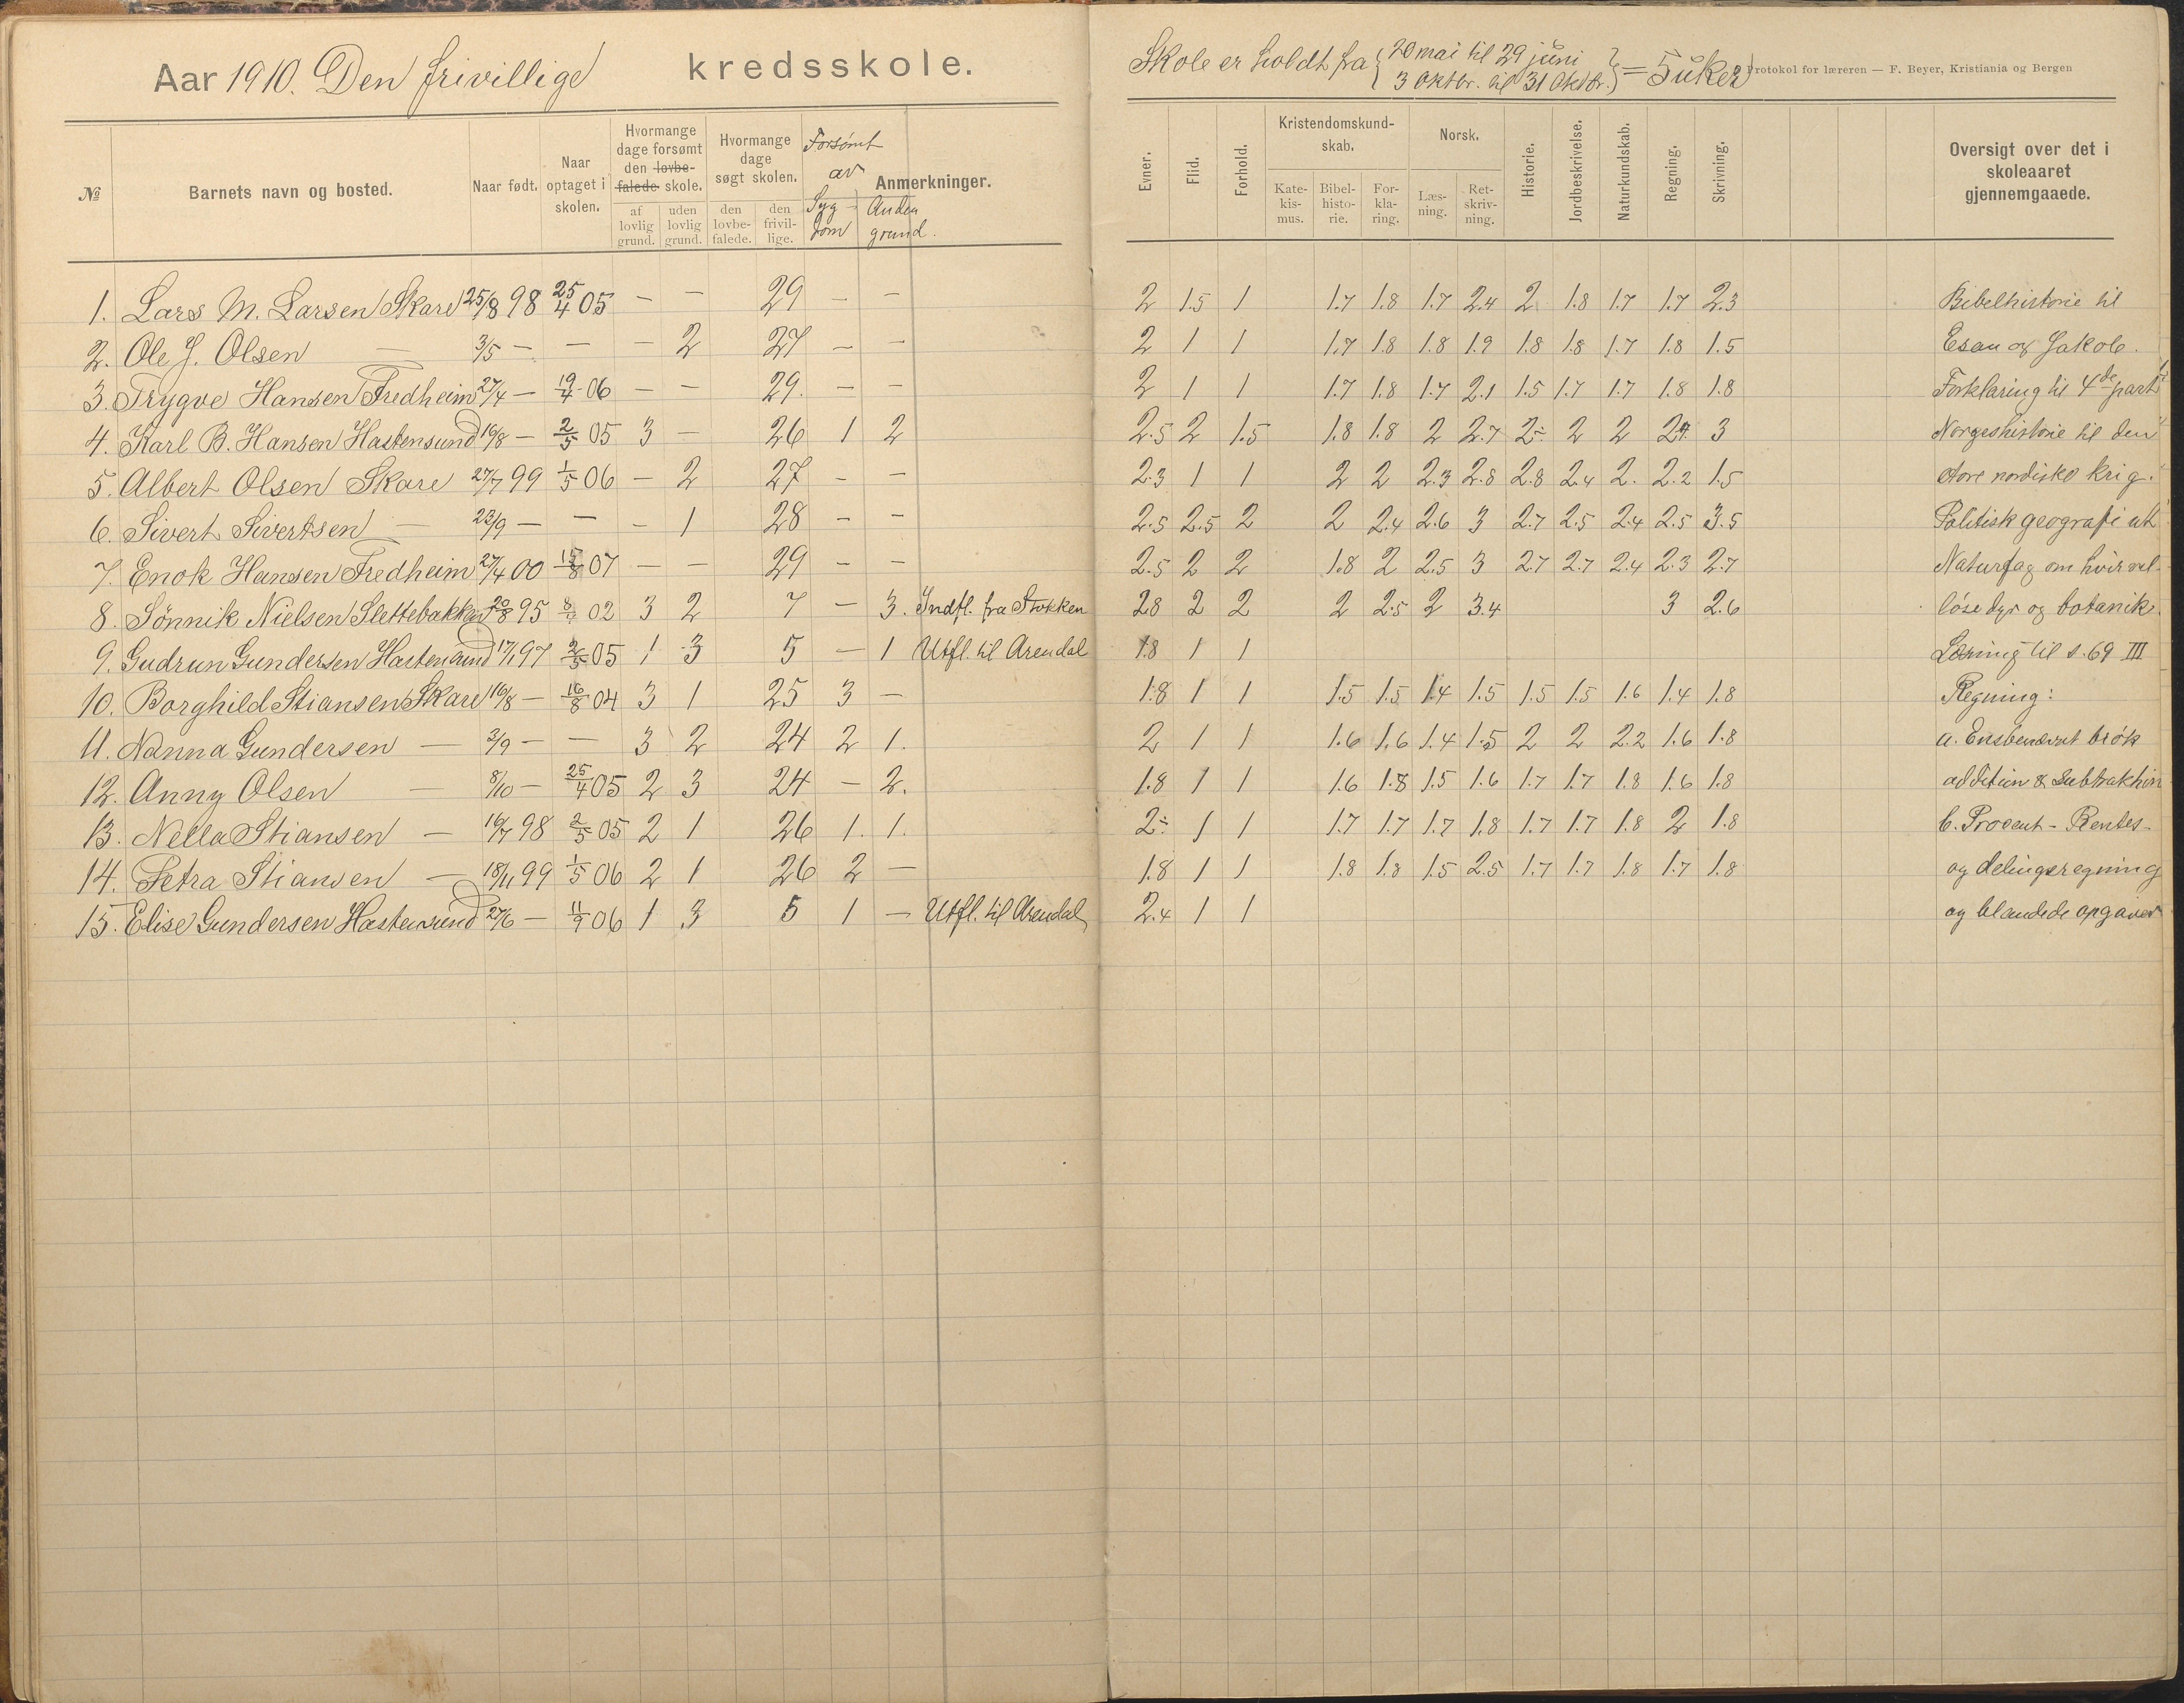 Aar 1910. Den frivillige kredsskole.
№ Barnets navn og bosted. Naar født. Naar optaget i skolen. Hvormange dage forsømt den lovbefalede skole. af lovlig grund. uden lovlig grund. Hvormange dage søgt skolen. den lovbefalede. den frivillige. Forsømt av Sygdom Anden grund. Anmerkninger.
1. Lars M. Larsen Skare 25/8 98 25/4 05 — — 29 — —
2. Ole J. Olsen — 3/5 — — — 2 27 — —
3. Trygve Hansen Fredheim 27/4 — 19/4 06 — — 29. — —
4. Karl B. Hansen Hastensund 16/8 — 2/5 05 3 — 26 1 2
5. Albert Olsen Skare 27/7 99 1/5 06 — 2 27 — —
6. Sivert Sivertsen — 23/9 — — — 1 28 — —
7. Enok Hansen Fredheim 27/4 00 15/8 07 — — 29 — —
8. Sønnik Nielsen Slettebakken 20/8 95 02 3 2 7 — 3. Indfl. fra Stokken
9. Gudrun Gundersen Hastensund 17/1 97 2/5 05 1 3 5 — 1 Utfl. til Arendal
10. Borghild Stiansen Skare 16/8 — 16/8 04 3 1 25 3 —
11. Nanna Gundersen — 3/9 — — 3 2 24 2 1.
12. Anny Olsen — 8/10 — 25/4 05 2 3 24 — 2.
13. Nella Stiansen — 16/7 98 2/5 05 2 1 26 1. 1.
14. Petra Stiansen — 18/11 99 1/5 06 2 1 26 2 —
15. Elise Gundersen Hastensund 27/6 — 11/9 06 1 3 5 1 — Utfl. til Arendal
Skole er holdt fra { 20 mai til 29 juni
3 Oktbr. til 31 Oktbr. } = 5 uker
Protokol for læreren — F. Beyer, Kristiania og Bergen
Evner. Flid. Forhold. Kristendomskundskab. Katekismus. Bibelhistorie. Forklaring. Norsk. Læsning. Retskrivning. Historie. Jordbeskrivelse. Naturkundskab. Regning. Skrivning. Oversigt over det i skoleaaret gjennemgaaede.
2 1.5 1 1.7 1.8 1.7 2.4 2 1.8 1.7 1.7 2.3 Bibelhistorie til
2 1 1 1.7 1.8 1.8 1.9 1.8 1.8 1.7 1.8 1.5 Esau og Jakob.
2 1 1 1.7 1.8 1.7 2.1 1.5 1.7 1.7 1.8 1.8 Forklaring til 4de part
2.5 2 1.5 1.8 1.8 2 2.7 2÷ 2 2 2.4 3 Norgeshistorie til den
2.3 1 1 2 2 2.3 2.8 2.8 2.4 2. 2.2 1.5 store nordiske krig.
2.5 2.5 2 2 2.4 2.6 3 2.7 2.5 2.4 2.5 3.5 Politisk geografi ut
2.5 2 2 1.8 2 2.5 3 2.7 2.7 2.4 2.3 2.7 Naturfag om hvirvel-
2.8 2 2 2 2.5 2 3.4 3 2.6 løse dyr og botanik.
1.8 1 1 Læsning til s. 69 III
1.8 1 1 1.5 1.5 1.4 1.5 1.5 1.5 1.6 1.4 1.8 Regning:
2 1 1 1.6 1.6 1.4 1.5 2 2 2.2 1.6 1.8 a. Ensbenævnt brøk
1.8 1 1 1.6 1.8 1.5 1.6 1.7 1.7 1.8 1.6 1.8 addition & subtraktion
2÷ 1 1 1.7 1.7 1.7 1.8 1.7 1.7 1.8 2 1.8 b. Procent- Rentes-
1.8 1 1 1.8 1.8 1.5 2.5 1.7 1.7 1.8 1.7 1.8 og delingsregning
2.4 1 1 og blandede opgaver